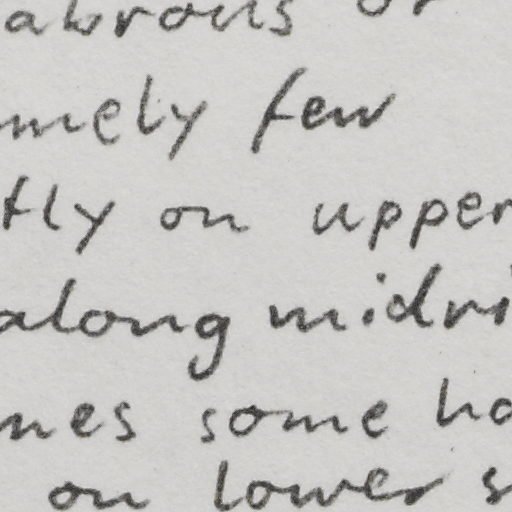 abrous or
mely few
tly on upper
along midri
mes some ha
on lower s